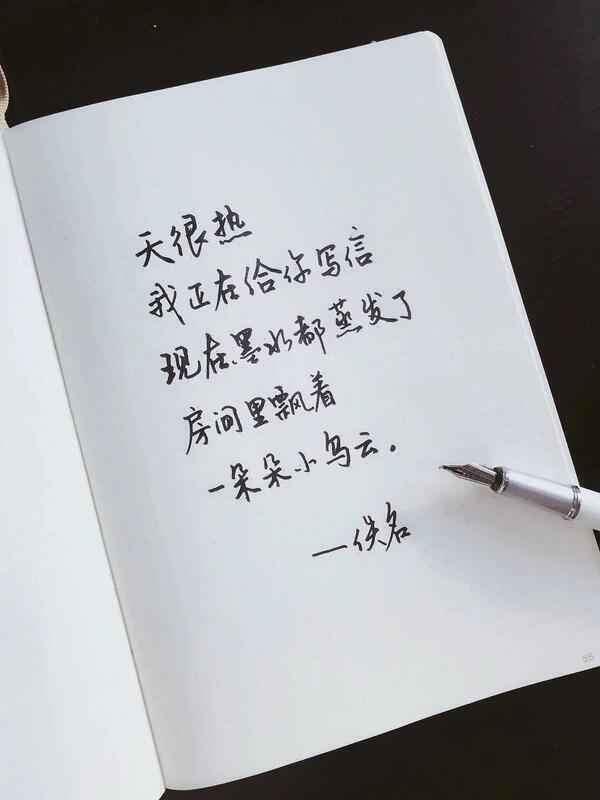 天很热
我正在给你写信
现在墨水都蒸发了
房间里飘着
一朵朵小乌云。
—佚名
55